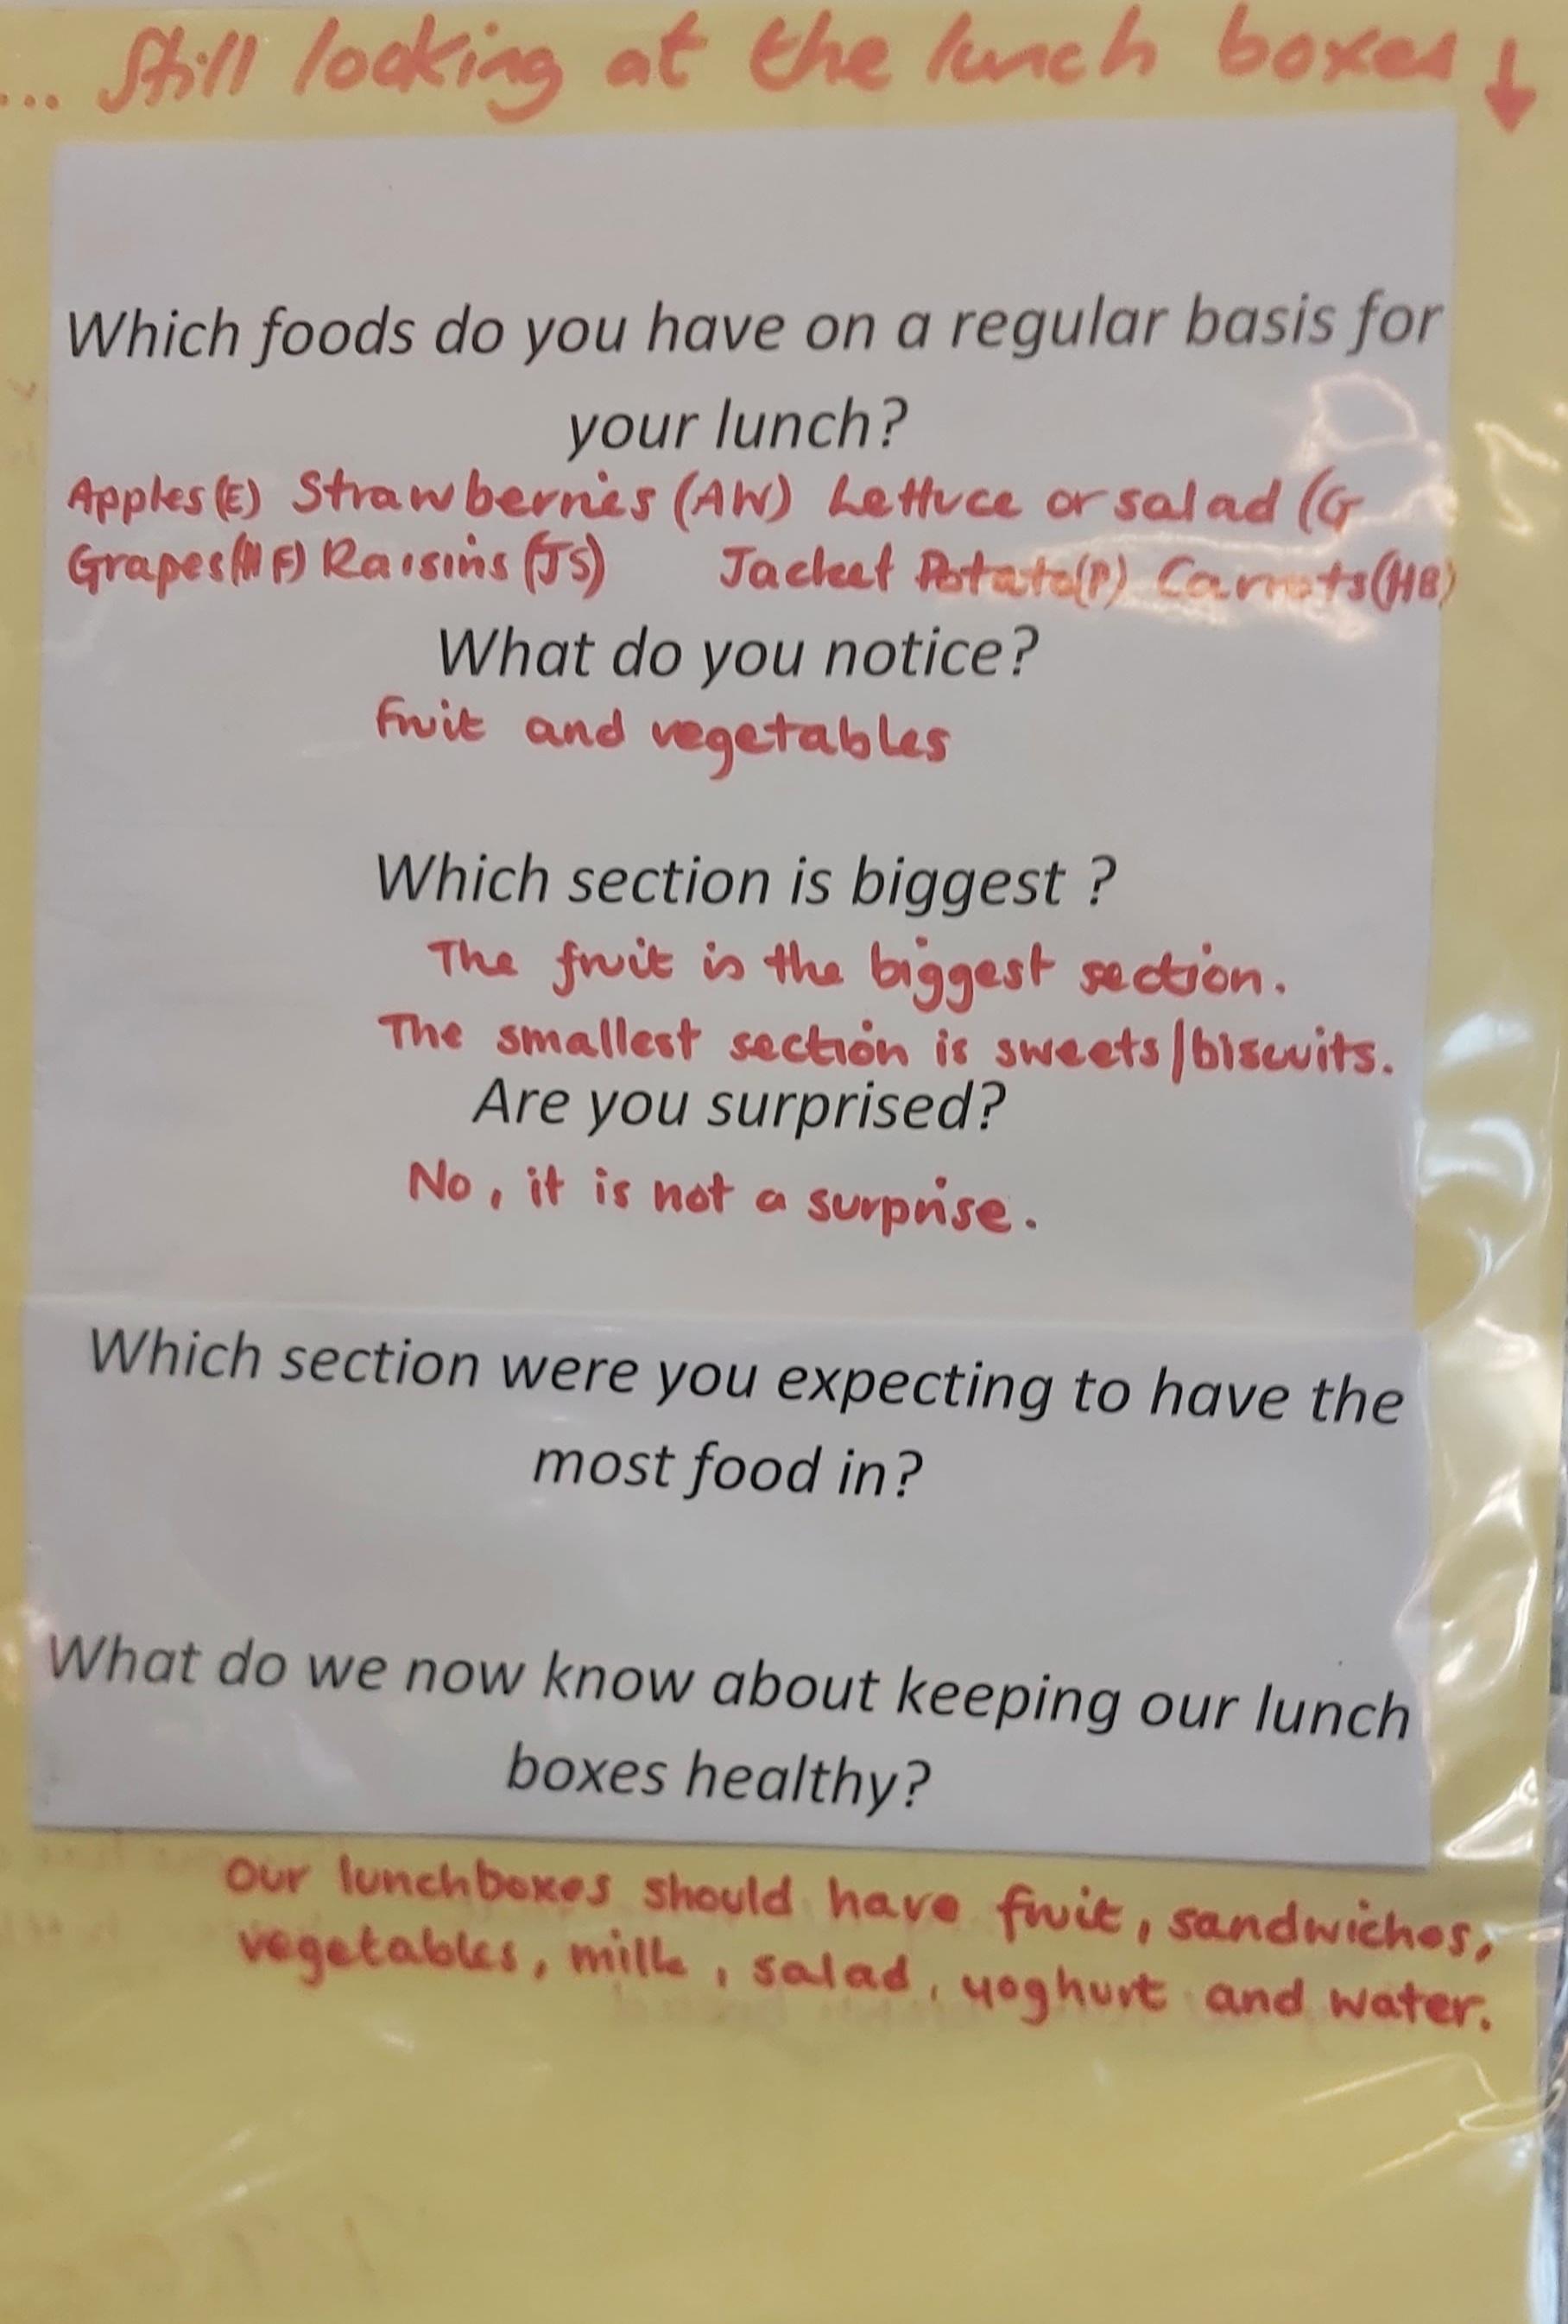 ... Still looking at the lunch boxes ↓
Which foods do you have on a regular basis for
your lunch?
Apples (E) Strawberries (AW) Lettuce or salad (G
Grapes (F) Raisins (JS) Jacket Potato (P) Carrots (HB)
What do you notice?
Fruit and vegetables
Which section is biggest ?
The fruit is the biggest section.
The smallest section is sweets/biscuits.
Are you surprised?
No, it is not a surprise.
Which section were you expecting to have the
most food in?
What do we now know about keeping our lunch
boxes healthy?
Our lunchboxes should have fruit, sandwiches,
vegetables, milk, salad, yoghurt and water.